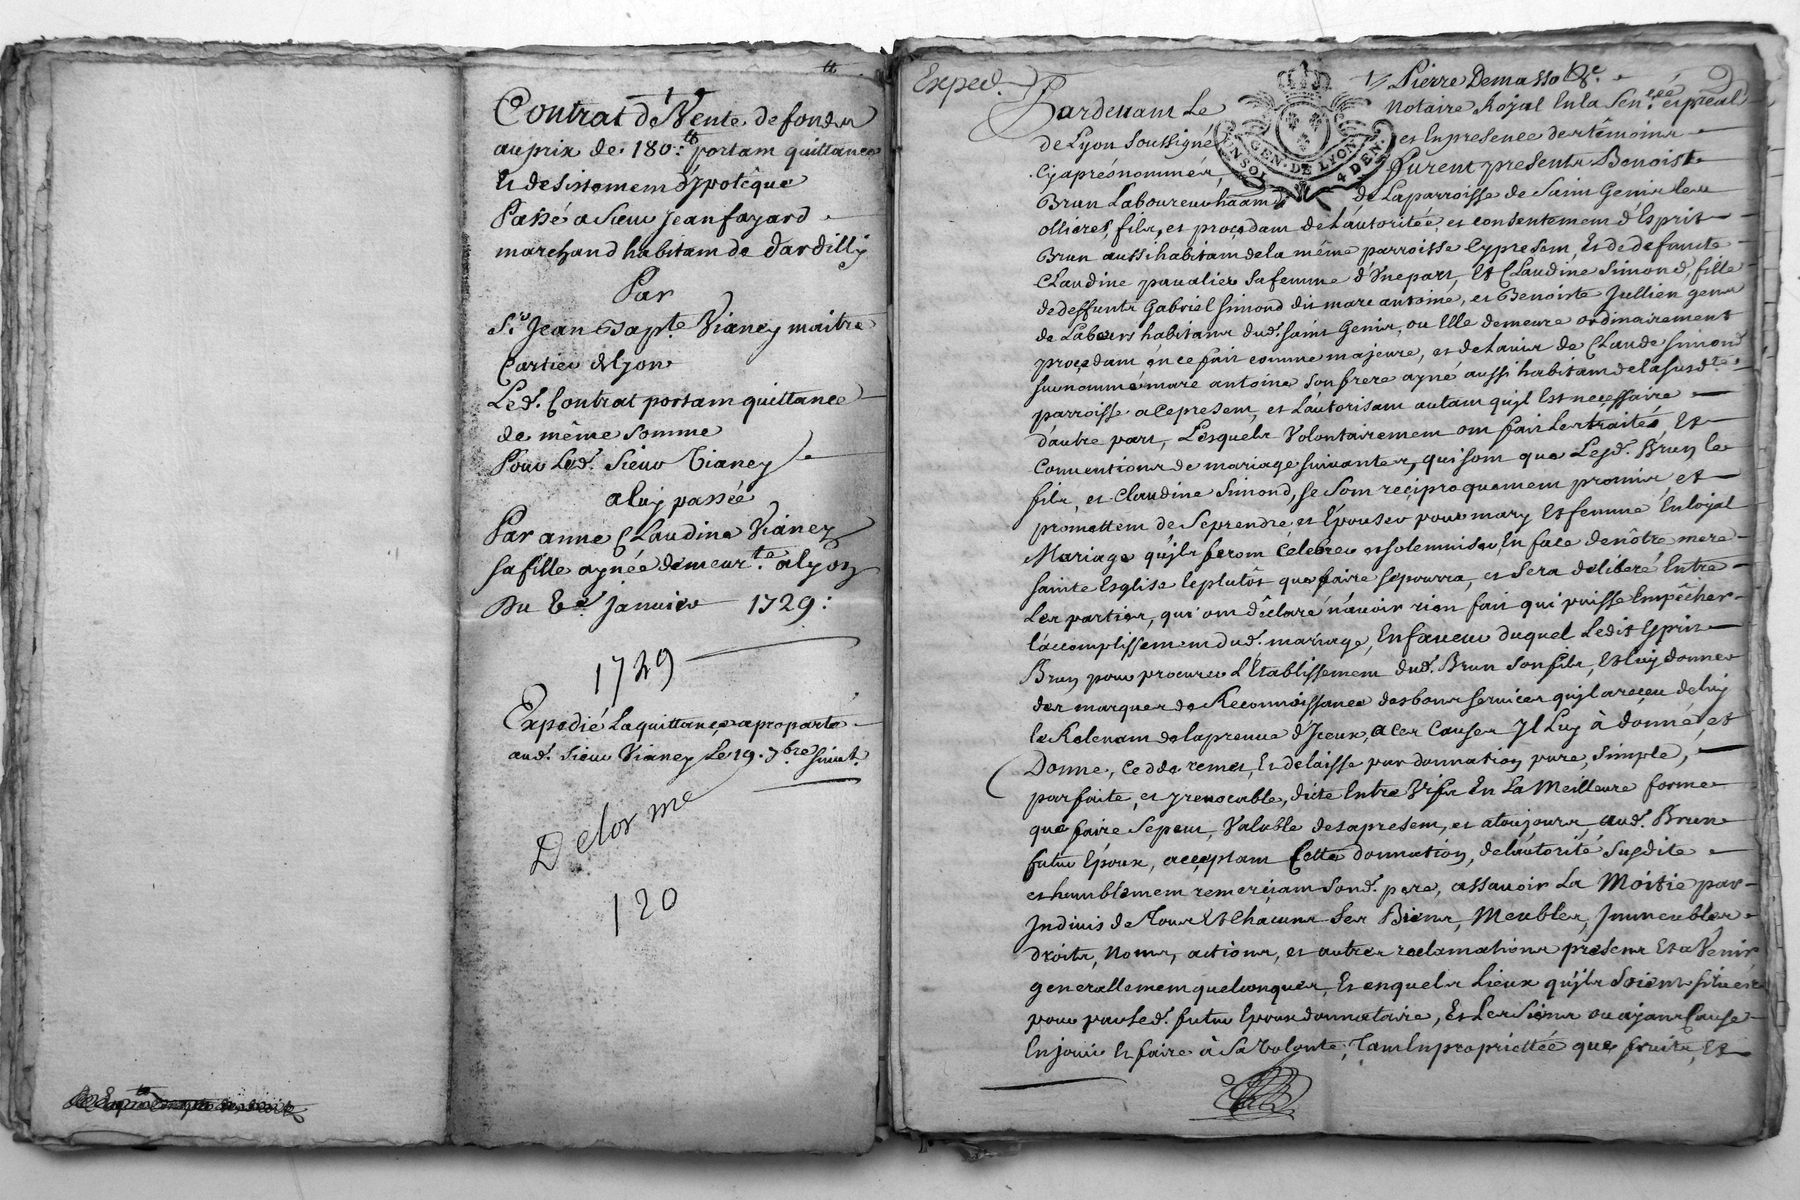 Contrat de Vente de fonds
au prix de 180:ᵗᵗ portant quittance
Et desistement d'ypotêque
Passé a Sieur Jean fayard
marchand habitant de Dardilly
Par
Sʳ Jean Bapᵗᵉ Vianey maitre
Cartier a Lyon
Led. Contrat portant quittance
de même somme
Pour Led. Sieur Vianey
a luy passée
Par anne Claudine Vianey
sa fille aynée demeurᵗᵉ. a lyon
Du Janvier 1729:
1729
Expedié La quittance a proparte
aud. Sieur Vianey Le 19. 7bre suivt.
Delorme
120
Exped.
Pardevant Le Pierre Demasso
Notaire Royal En la Senᶜᵉᵉ et presal
de Lyon Soussigné et En presence des têmoins
Cy aprés nommés, Furent presents Benoist
GEN. DE LYON
4 DEN.
Brun Laboureur habitant de La parroisse de Saint Genis les
ollieres, fils, et procedant de L'autoritée, et consentement d'Esprit
Brun aussi habitant de la même parroisse Cy present, Et de defunte
Claudine pavalier sa femme d'Une part, Et Claudine Simond, fille
de deffunts Gabriel Simond dit marc antoine, et Benoiste Jullien gens
de Labeurs habitans dud. Saint Genis, ou Elle demeure ordinairement
procedant en ce fait comme majeure, et de L'avis de Claude Simond
surnommé marc antoine son frere ayné aussi habitant de la susdᵗᵉ.
parroisse a ce present, et L'autorisant autant qu'jl Est neçessaire
d'autre part, Lesquels Volontairement ont fait Les traités, Et
Conventions de mariage suivantes, qui sont que Lesd. Brun le
fils, et Claudine Simond, se sont réciproquement promis, et
promettent de Se prendre et Epouser pour mary Et femme En loyal
Mariage qu'jls feront Célebrer et solemniser En face de nôtre mere
sainte Esglise le plutôt que faire se pourra, et Sera déliberé Entre
Les parties, qui ont dêclaré n'avoir rien fait qui puisse Empêcher
L'accomplissement dud. mariage, En faveur duquel Ledit Esprit
Brun pour procurer L'Etablissement dud. Brun Son fils, Et luy donner
des marques de Reconnoissance des bons services qu'jl a receu de luy
le Relevant de la preuve d'Jceux, a ces Causes Jl Luy à dônné, et
Donne, cedde remet, Et delaisse par donnation pure, Simple,
parfaite, et jrrevocable, dicte Entre Vifs En La Meilleure forme
que faire se peut, Valable des a present, et a toujours, aud. Brun
futur Epoux, acçeptant Cette donnation, de L'autorité Susdite
et humblement remerciant Sond. pere, assavoir La Moitie par
Jndivis de Tous Et Chacuns Ses Biens, Meubles, Jmmeubles
droits, Noms, actions, et autres reclamations presens Et a Venir
generallement quelconques, Et en quels Lieux qu'jls Soient situés
pour par Led. futur Epoux donnataire, Et Les Siens ou ayans Cause
En jouir Et faire à Sa Volonte, Tant En propriettée que fruits, Et